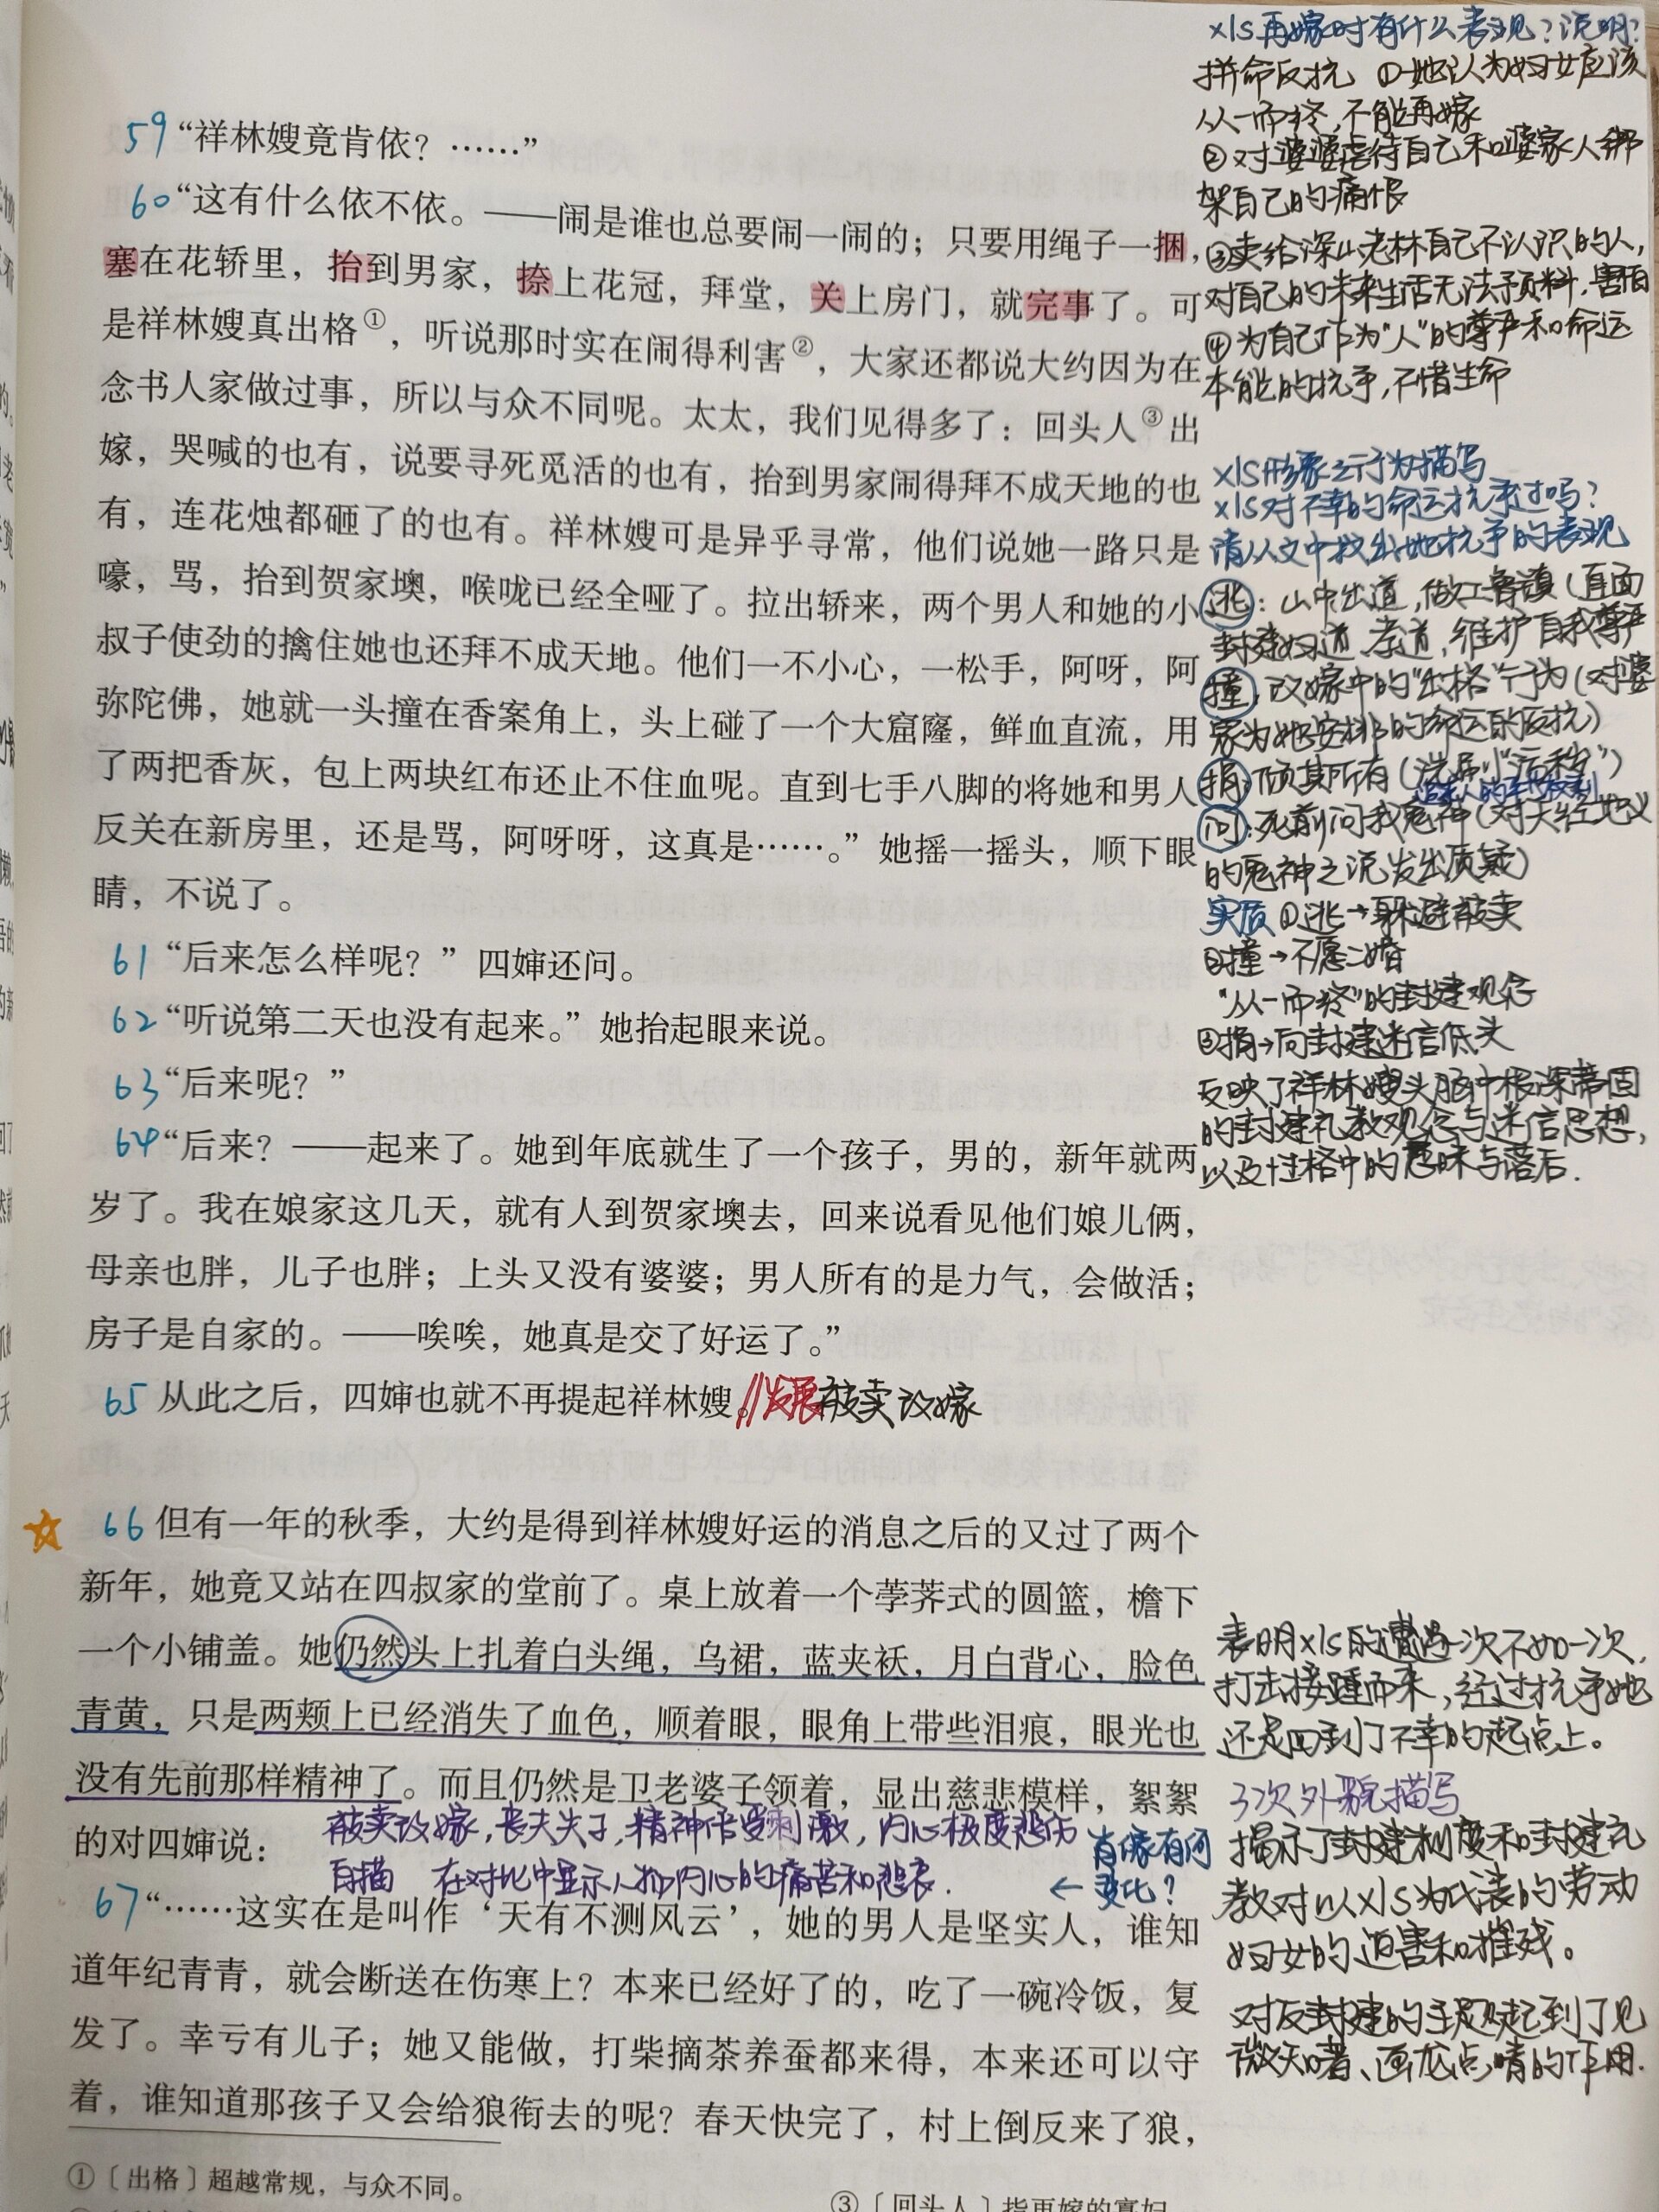 59 “祥林嫂竟肯依？……”
60 “这有什么依不依。——闹是谁也总要闹一闹的；只要用绳子一捆，
塞在花轿里，抬到男家，捺上花冠，拜堂，关上房门，就完事了。可
是祥林嫂真出格①，听说那时实在闹得利害②，大家还都说大约因为在
念书人家做过事，所以与众不同呢。太太，我们见得多了：回头人③出
嫁，哭喊的也有，说要寻死觅活的也有，抬到男家闹得拜不成天地的也
有，连花烛都砸了的也有。祥林嫂可是异乎寻常，他们说她一路只是
嚎，骂，抬到贺家墺，喉咙已经全哑了。拉出轿来，两个男人和她的小
叔子使劲的擒住她也还拜不成天地。他们一不小心，一松手，阿呀，阿
弥陀佛，她就一头撞在香案角上，头上碰了一个大窟窿，鲜血直流，用
了两把香灰，包上两块红布还止不住血呢。直到七手八脚的将她和男人
反关在新房里，还是骂，阿呀呀，这真是……。”她摇一摇头，顺下眼
睛，不说了。
61 “后来怎么样呢？”四婶还问。
62 “听说第二天也没有起来。”她抬起眼来说。
63 “后来呢？”
64 “后来？——起来了。她到年底就生了一个孩子，男的，新年就两
岁了。我在娘家这几天，就有人到贺家墺去，回来说看见他们娘儿俩，
母亲也胖，儿子也胖；上头又没有婆婆；男人所有的是力气，会做活；
房子是自家的。——唉唉，她真是交了好运了。”
65 从此之后，四婶也就不再提起祥林嫂。//发展 被卖改嫁
66 但有一年的秋季，大约是得到祥林嫂好运的消息之后的又过了两个
新年，她竟又站在四叔家的堂前了。桌上放着一个荸荠式的圆篮，檐下
一个小铺盖。她仍然头上扎着白头绳，乌裙，蓝夹袄，月白背心，脸色
青黄，只是两颊上已经消失了血色，顺着眼，眼角上带些泪痕，眼光也
没有先前那样精神了。而且仍然是卫老婆子领着，显出慈悲模样，絮絮
的对四婶说：
被卖改嫁，丧夫失子，精神倍受刺激，内心极度悲伤
白描 在对比中显示人物内心的痛苦和悲哀.
肖像有何
← 变化？
67 “……这实在是叫作‘天有不测风云’，她的男人是坚实人，谁知
道年纪青青，就会断送在伤寒上？本来已经好了的，吃了一碗冷饭，复
发了。幸亏有儿子；她又能做，打柴摘茶养蚕都来得，本来还可以守
着，谁知道那孩子又会给狼衔去的呢？春天快完了，村上倒反来了狼，
①〔出格〕超越常规，与众不同。
③〔回头人〕指再嫁的寡妇
xls再嫁时有什么表现？说明？
拼命反抗 ①她认为妇女应该
从一而终，不能再嫁
②对婆婆虐待自己和婆家人绑
架自己的痛恨
③卖给深山老林自己不认识的人，
对自己的未来生活无法预料，害怕
④为自己作为“人”的尊严和命运
本能的抗争，不惜生命
xls形象之行为描写
xls对不幸的命运抗争过吗？
请从文中找出她抗争的表现
逃：山中出逃，做工鲁镇（直面
封建妇道、孝道，维护自我尊严
撞：改嫁中的“出格”行为（对婆
家为她安排的命运的反抗）
捐：倾其所有（洗刷“污秽”）
追求人的平等权利
问：死前问我鬼神（对天经地义
的鬼神之说发出质疑）
实质 ①逃→躲避被卖
②撞→不愿二婚
“从一而终”的封建观念
③捐→向封建迷信低头
反映了祥林嫂头脑中根深蒂固
的封建礼教观念与迷信思想，
以及性格中的愚昧与落后.
表明xls的遭遇一次不如一次，
打击接踵而来，经过抗争她
还是回到了不幸的起点上。
3次外貌描写
揭示了封建制度和封建礼
教对以xls为代表的劳动
妇女的迫害和摧残。
对反封建的主题起到了见
微知著、画龙点睛的作用.